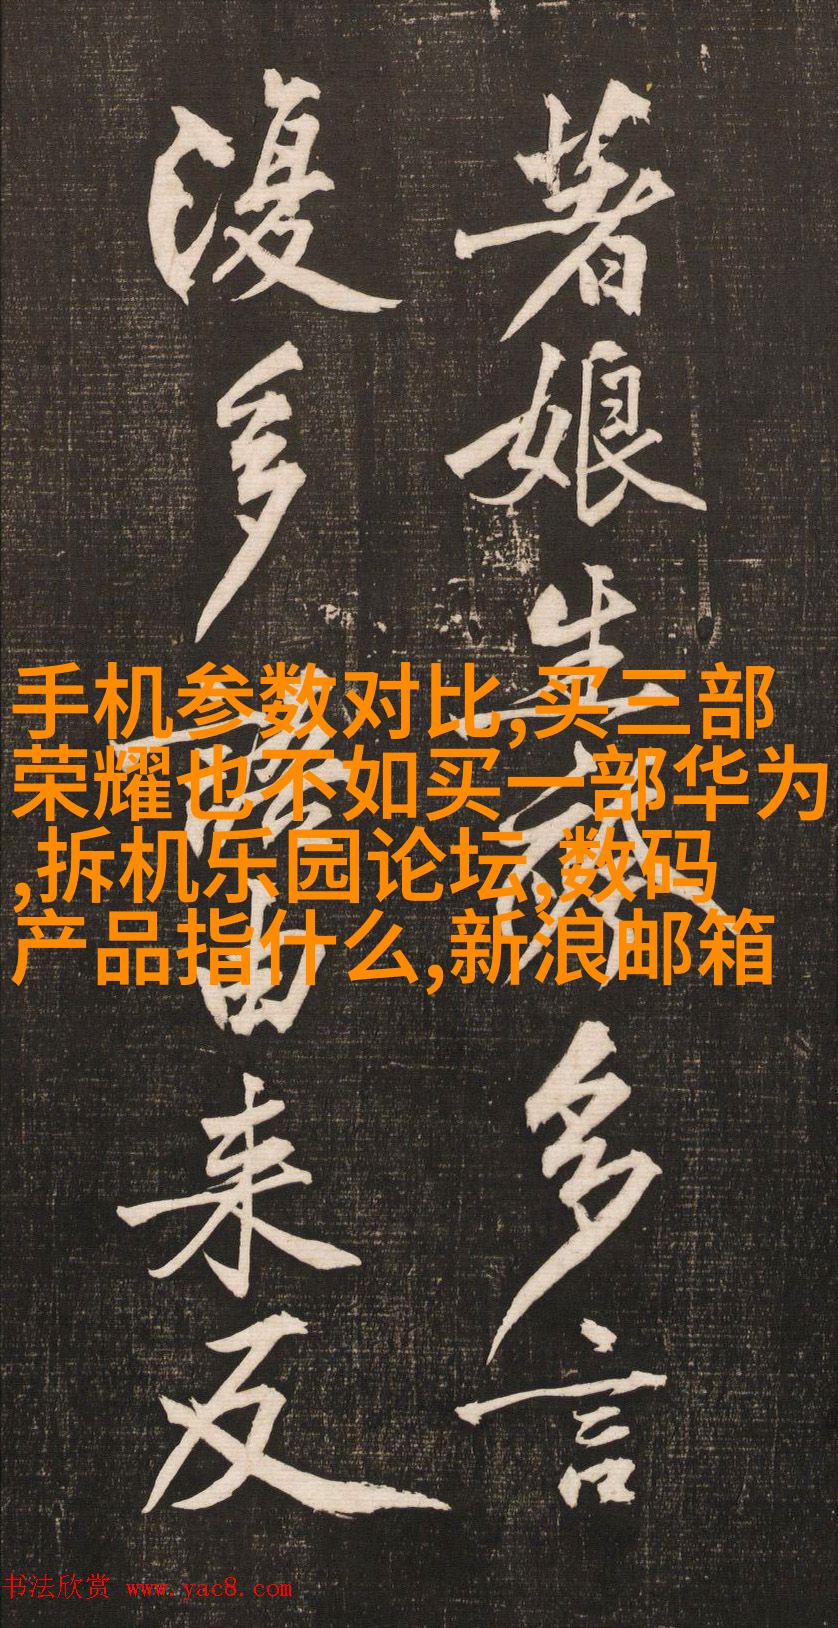 著娘生多言
復多語由来反
手机参数对比,买三部
荣耀也不如买一部华为
,拆机乐园论坛,数码
产品指什么,新浪邮箱
书法欣赏 www.yac8.com